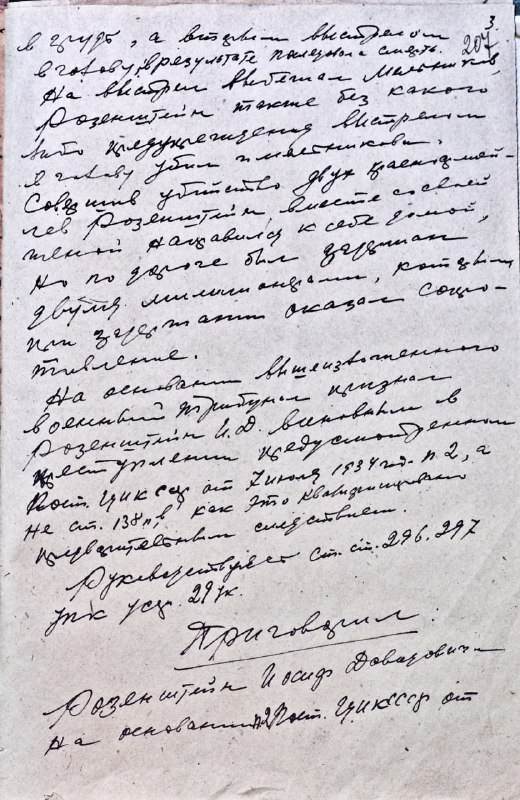 3.
207
в грудь, а вторым выстрелом
в голову, в результате последовала смерть.
На выстрел выбежал Мясников,
Розенштейн также без какого
либо предупреждения выстрелом
в голову убил и Мясникова.
Совершив убийство двух красноармей-
цев Розенштейн, вместе со своей
женой направился к себе домой,
но по дороге был задержан
двумя милиционерами, которым
при задержании оказал сопро-
тивление.
На основании вышеизложенного
военный трибунал признал
Розенштейн И.Д. виновным в
преступлении предусмотренном
Пост. ЦИКССР от 7 июля 1934 год. п. 2, а
не ст. 138 п. в как это квалифицировано
предварительным следствием.
Руководствуясь ст. ст. 296. 297
УПК УССР. 29 ук.
Приговорил
Розенштейн Иосиф Давидовича
на основании п. 2 Пост. ЦИКССР от